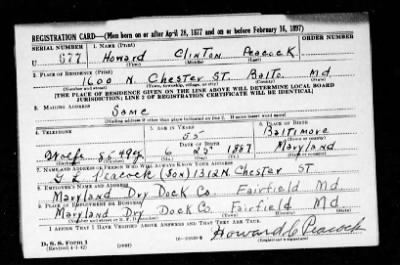 REGISTRATION CARD—(Men born on or after April 28, 1877 and on or before February 16, 1897)
SERIAL NUMBER 1. NAME (Print)
U 677 Howard Clinton Peacock
(First) (Middle) (Last)
2. PLACE OF RESIDENCE (Print)
1600 N. Chester ST. Balto. Md
(Number and street) (Town, township, village, or city) (County) (State)
[THE PLACE OF RESIDENCE GIVEN ON THE LINE ABOVE WILL DETERMINE LOCAL BOARD
JURISDICTION; LINE 2 OF REGISTRATION CERTIFICATE WILL BE IDENTICAL]
3. MAILING ADDRESS
Same
[Mailing address if other than place indicated on line 2. If same insert word same]
4. TELEPHONE 5. AGE IN YEARS 6. PLACE OF BIRTH
55 Baltimore
DATE OF BIRTH
6 25 1887 Maryland
7. NAME AND ADDRESS OF PERSON WHO WILL ALWAYS KNOW YOUR ADDRESS
Peacock (Son) 1312 N Chester ST
8. EMPLOYER'S NAME AND ADDRESS
Maryland Dry Dock Co. Fairfield Md.
9. PLACE OF EMPLOYMENT OR BUSINESS
Maryland Dry Dock Co. Fairfield Md.
I AFFIRM THAT I HAVE VERIFIED ABOVE ANSWERS AND THAT THEY ARE TRUE.
D. S. S. Form 1 Howard C Peacock
(Revised 4-1-42) (Registrant's signature)